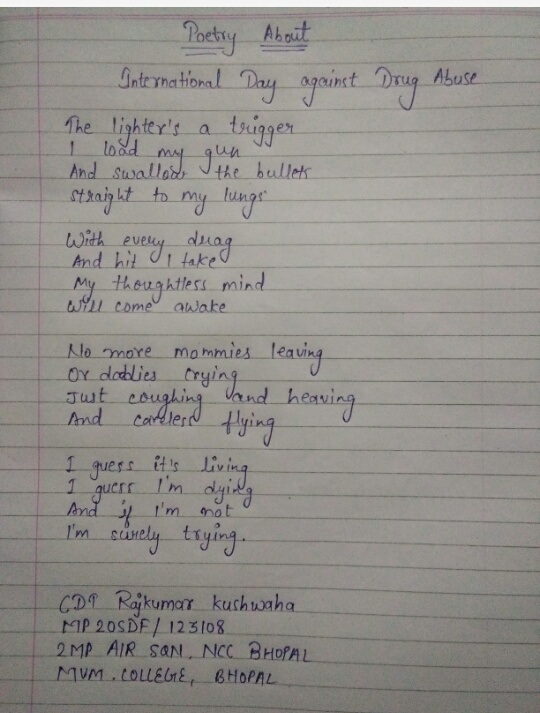 Poetry About
International Day against Drug Abuse
The lighter's a trigger
I load my gun
And swallow the bullets
straight to my lungs
With every drag
And hit I take
My thoughtless mind
Will come awake
No more mommies leaving
Or daddies crying
Just coughing and heaving
And careless flying
I guess it's living
I guess I'm dying
And if I'm not
I'm surely trying.
CDT Rajkumar kushwaha
MP20SDF/123108
2MP AIR SQN. NCC BHOPAL
MVM. COLLEGE, BHOPAL